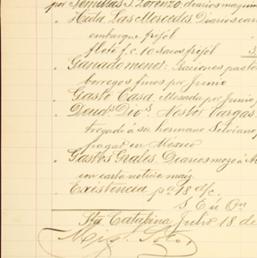 por Semillas S. Lorenzo, diarios maquin
" Hcda Las Mercedes Diarios car
embarque frijol
flete f.c. 10 sacos frijol 3
" Ganado menor. Raciones pasto
borregos finos por Junio
" Gasto Casa. Mesada por Junio
" Deud. Div. Nestor Vargas
tregado á su hermano
pagar en México
" Gastos Grales. Diarios mozo á
con carta noticia maíz
Existencia pª 18 d/c.
S. E. ú O.
Sta Catarina Julio 18 de